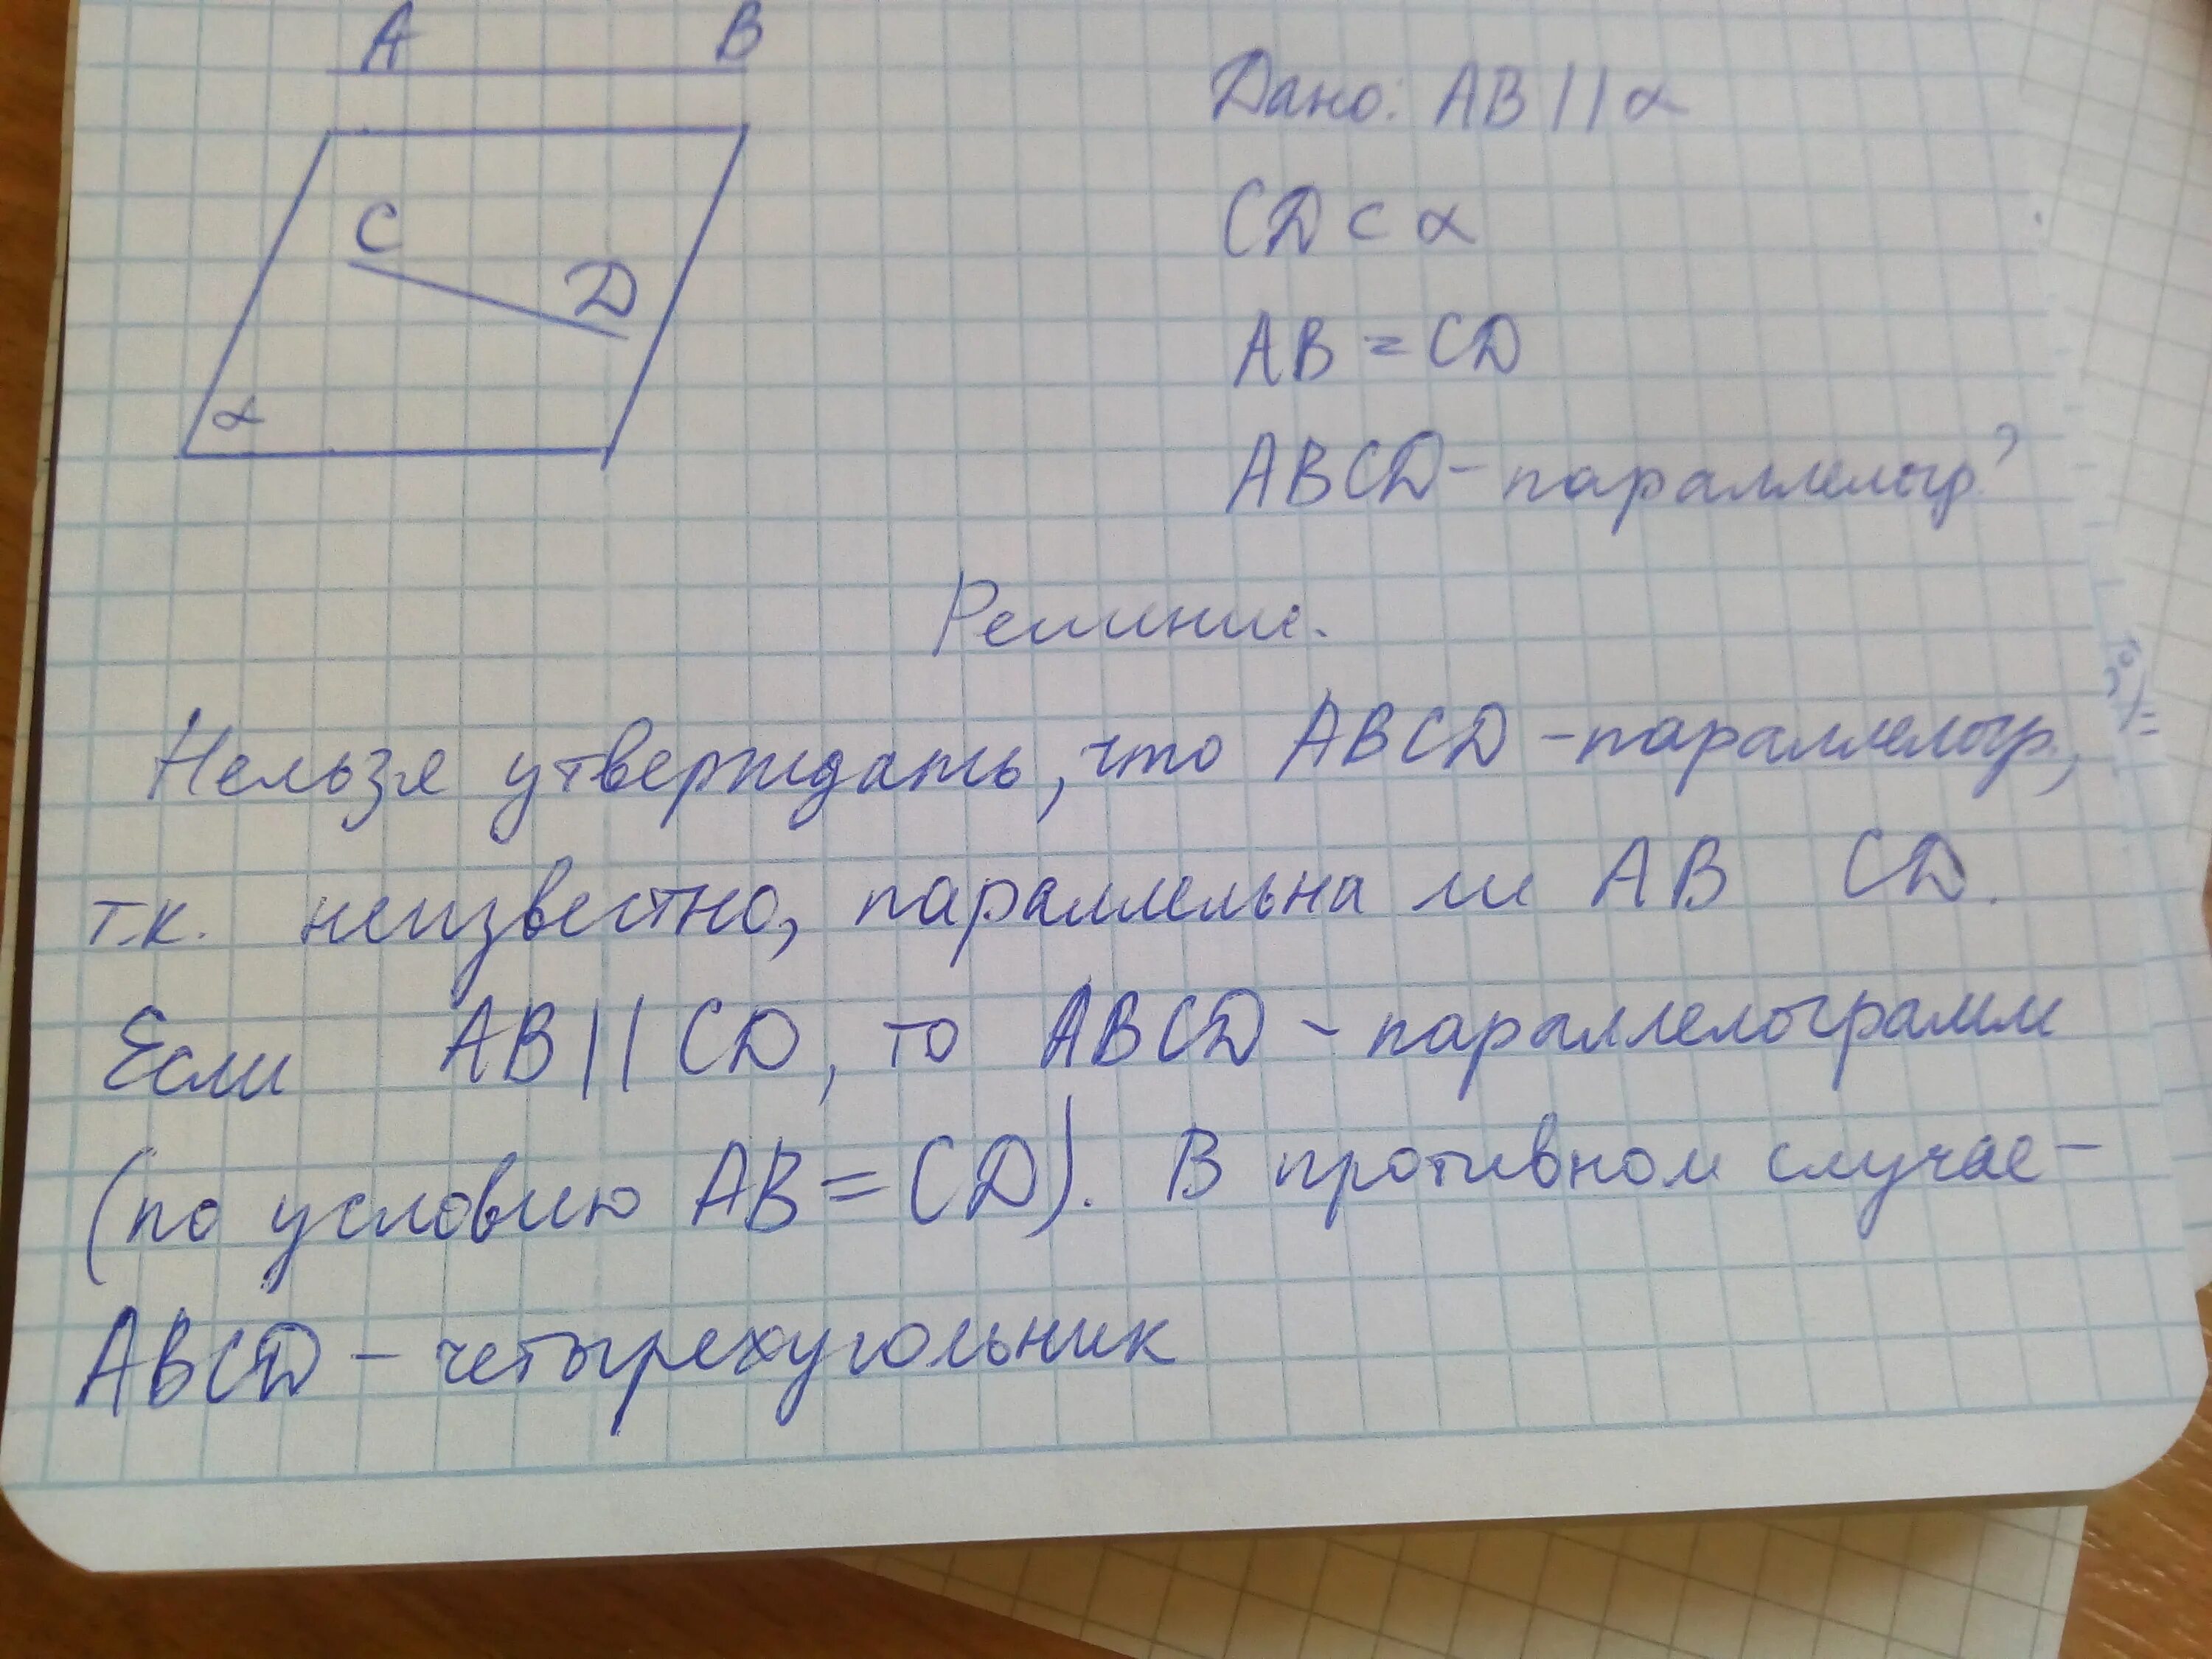 A B
C
D
α
Дано: AB || α
CD ⊂ α
AB = CD
ABCD - параллелогр?
Решение.
Нельзя утверждать, что ABCD - параллелогр.,
т.к. неизвестно, параллельна ли AB CD.
Если AB || CD, то ABCD - параллелограмм
(по условию AB = CD). В противном случае -
ABCD - четырехугольник